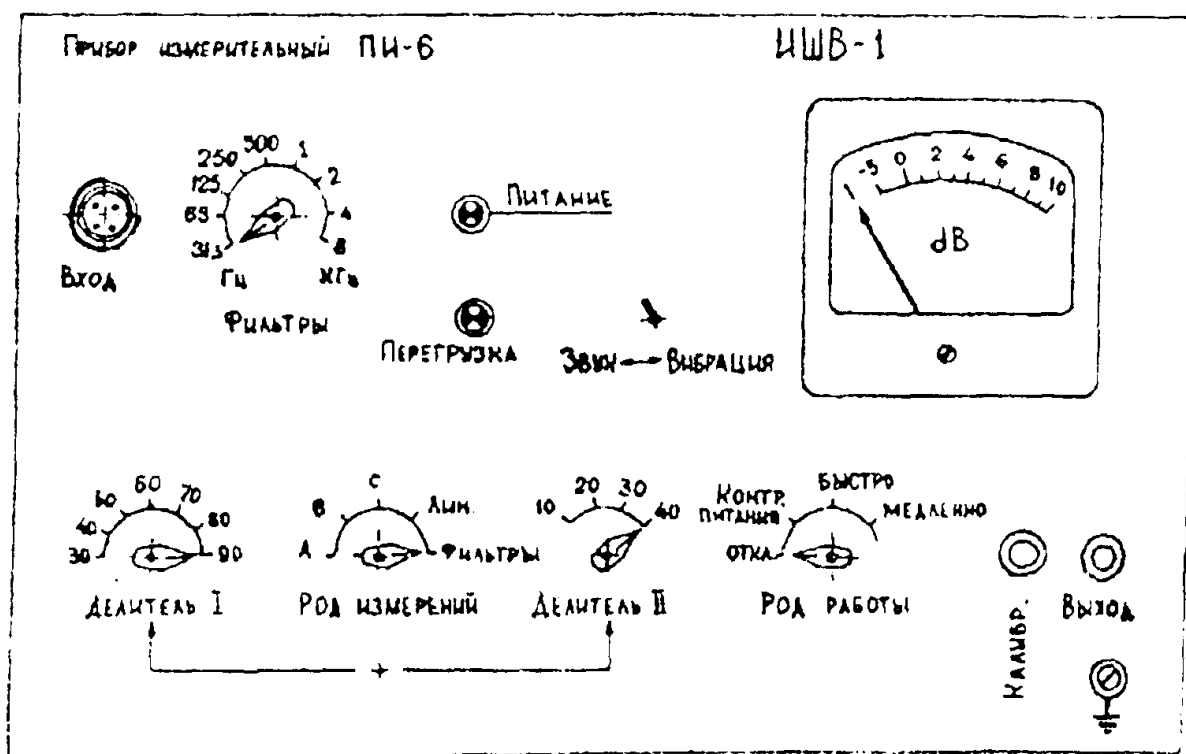 Прибор измерительный ПИ-6
ИШВ-1
31,5 63 125 250 500 1 2 4 8
Гц КГц
Фильтры
Вход
Питание
Перегрузка
Звук Вибрация
-5 0 2 4 6 8 10
dB
30 40 50 60 70 80 90
Делитель I
А В С Лин. Фильтры
Род измерений
10 20 30 40
Делитель II
Откл Контр. питания Быстро Медленно
Род работы
Калибр.
Выход